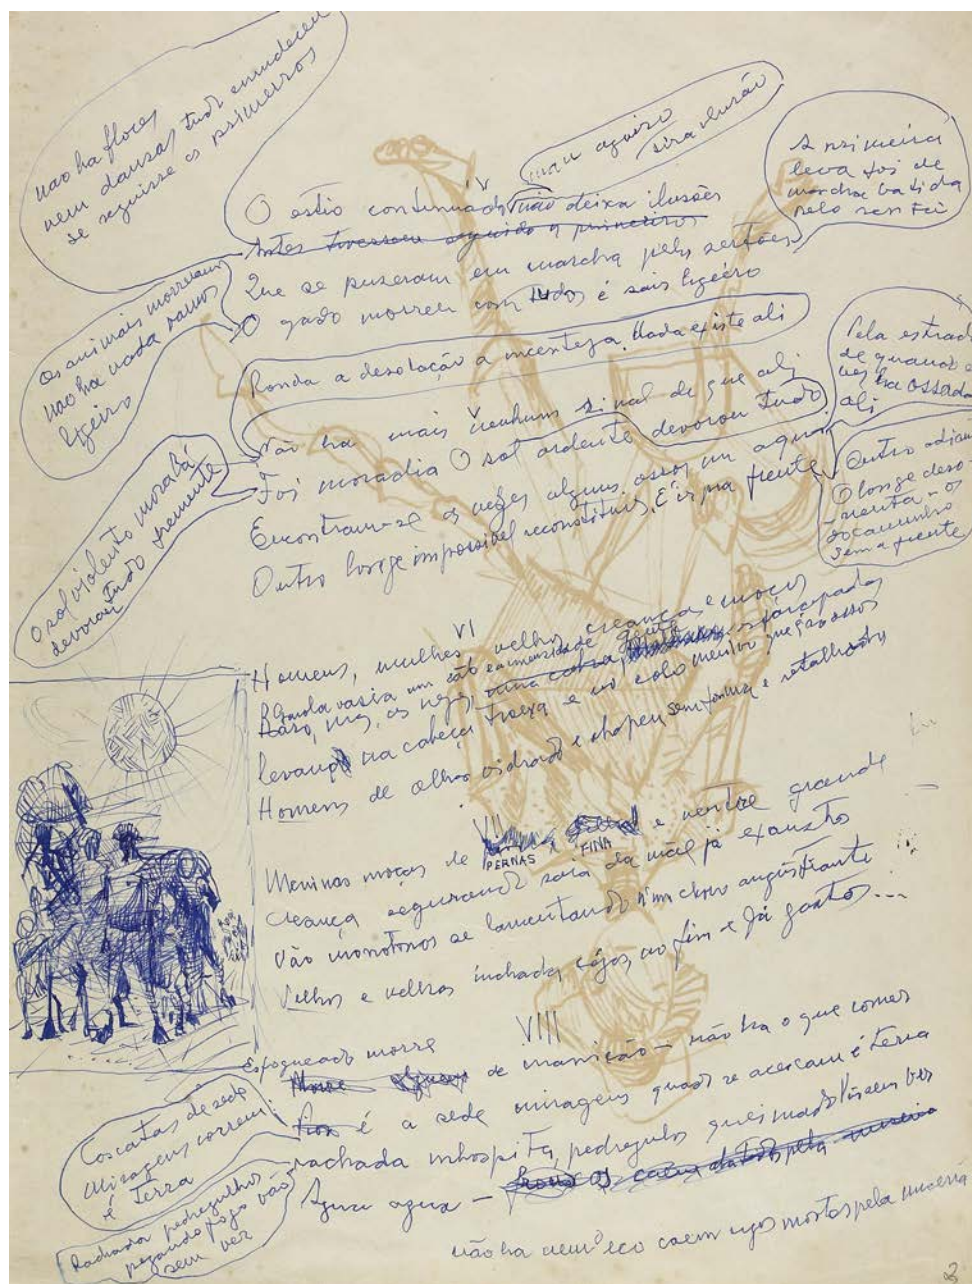 não ha flores
nem dansas, tudo emudeceu
se seguisse os primeiros
mau agoiro
tira ilusão
A primeira
leva foi de
marcha batida
pelo sem fei
V
O estio continuado não deixa ilusões
Antes tivessem seguido os primeiros
Que se puzeram em marcha pelos sertões
O gado morreu com tudo é sair ligeiro
Os animais morreram
não ha nada vamos
ligeiro
Ronda a desolação a incerteza. Nada existe ali
Não ha mais nenhum sinal de que ali
Foi moradia O sol ardente devorou tudo
Encontram-se as vezes alguns ossos um aqui
Outro longe impossivel reconstituir. É ir pra frente
O sol violento
devorou tudo
Pela estrada
de quando e
vez ha ossada
ali
Outro adian
O longe deso-
rienta-os
do caminho
sem a frente
VI
Homens, mulheres velhos creanças e moços
levando na cabeça trouxa e no colo menino que são ossos
Homens de olhos vidrados e chapeu sem forma e retalhados
VII
Meninas moças de PERNAS FINA e ventre grande
Creança segurando saia da mãe já exausta
Vão monotonos se lamentando num choro angustiante
Velhos e velhas inchados, cégos, no fim e já gastos...
VIII
Esfogueado morre de inanição – não ha o que comer
é a sede miragens quando se acercam é terra
rachada inhospita, pedregulhos queimados vêm sem ver
Agua agua –
não ha nem eco caem cegos mortos pela miseria
Cascatas de sede
Miragens correm
é terra
Rachada pedregulhos
pegando fogo vão
sem ver
8